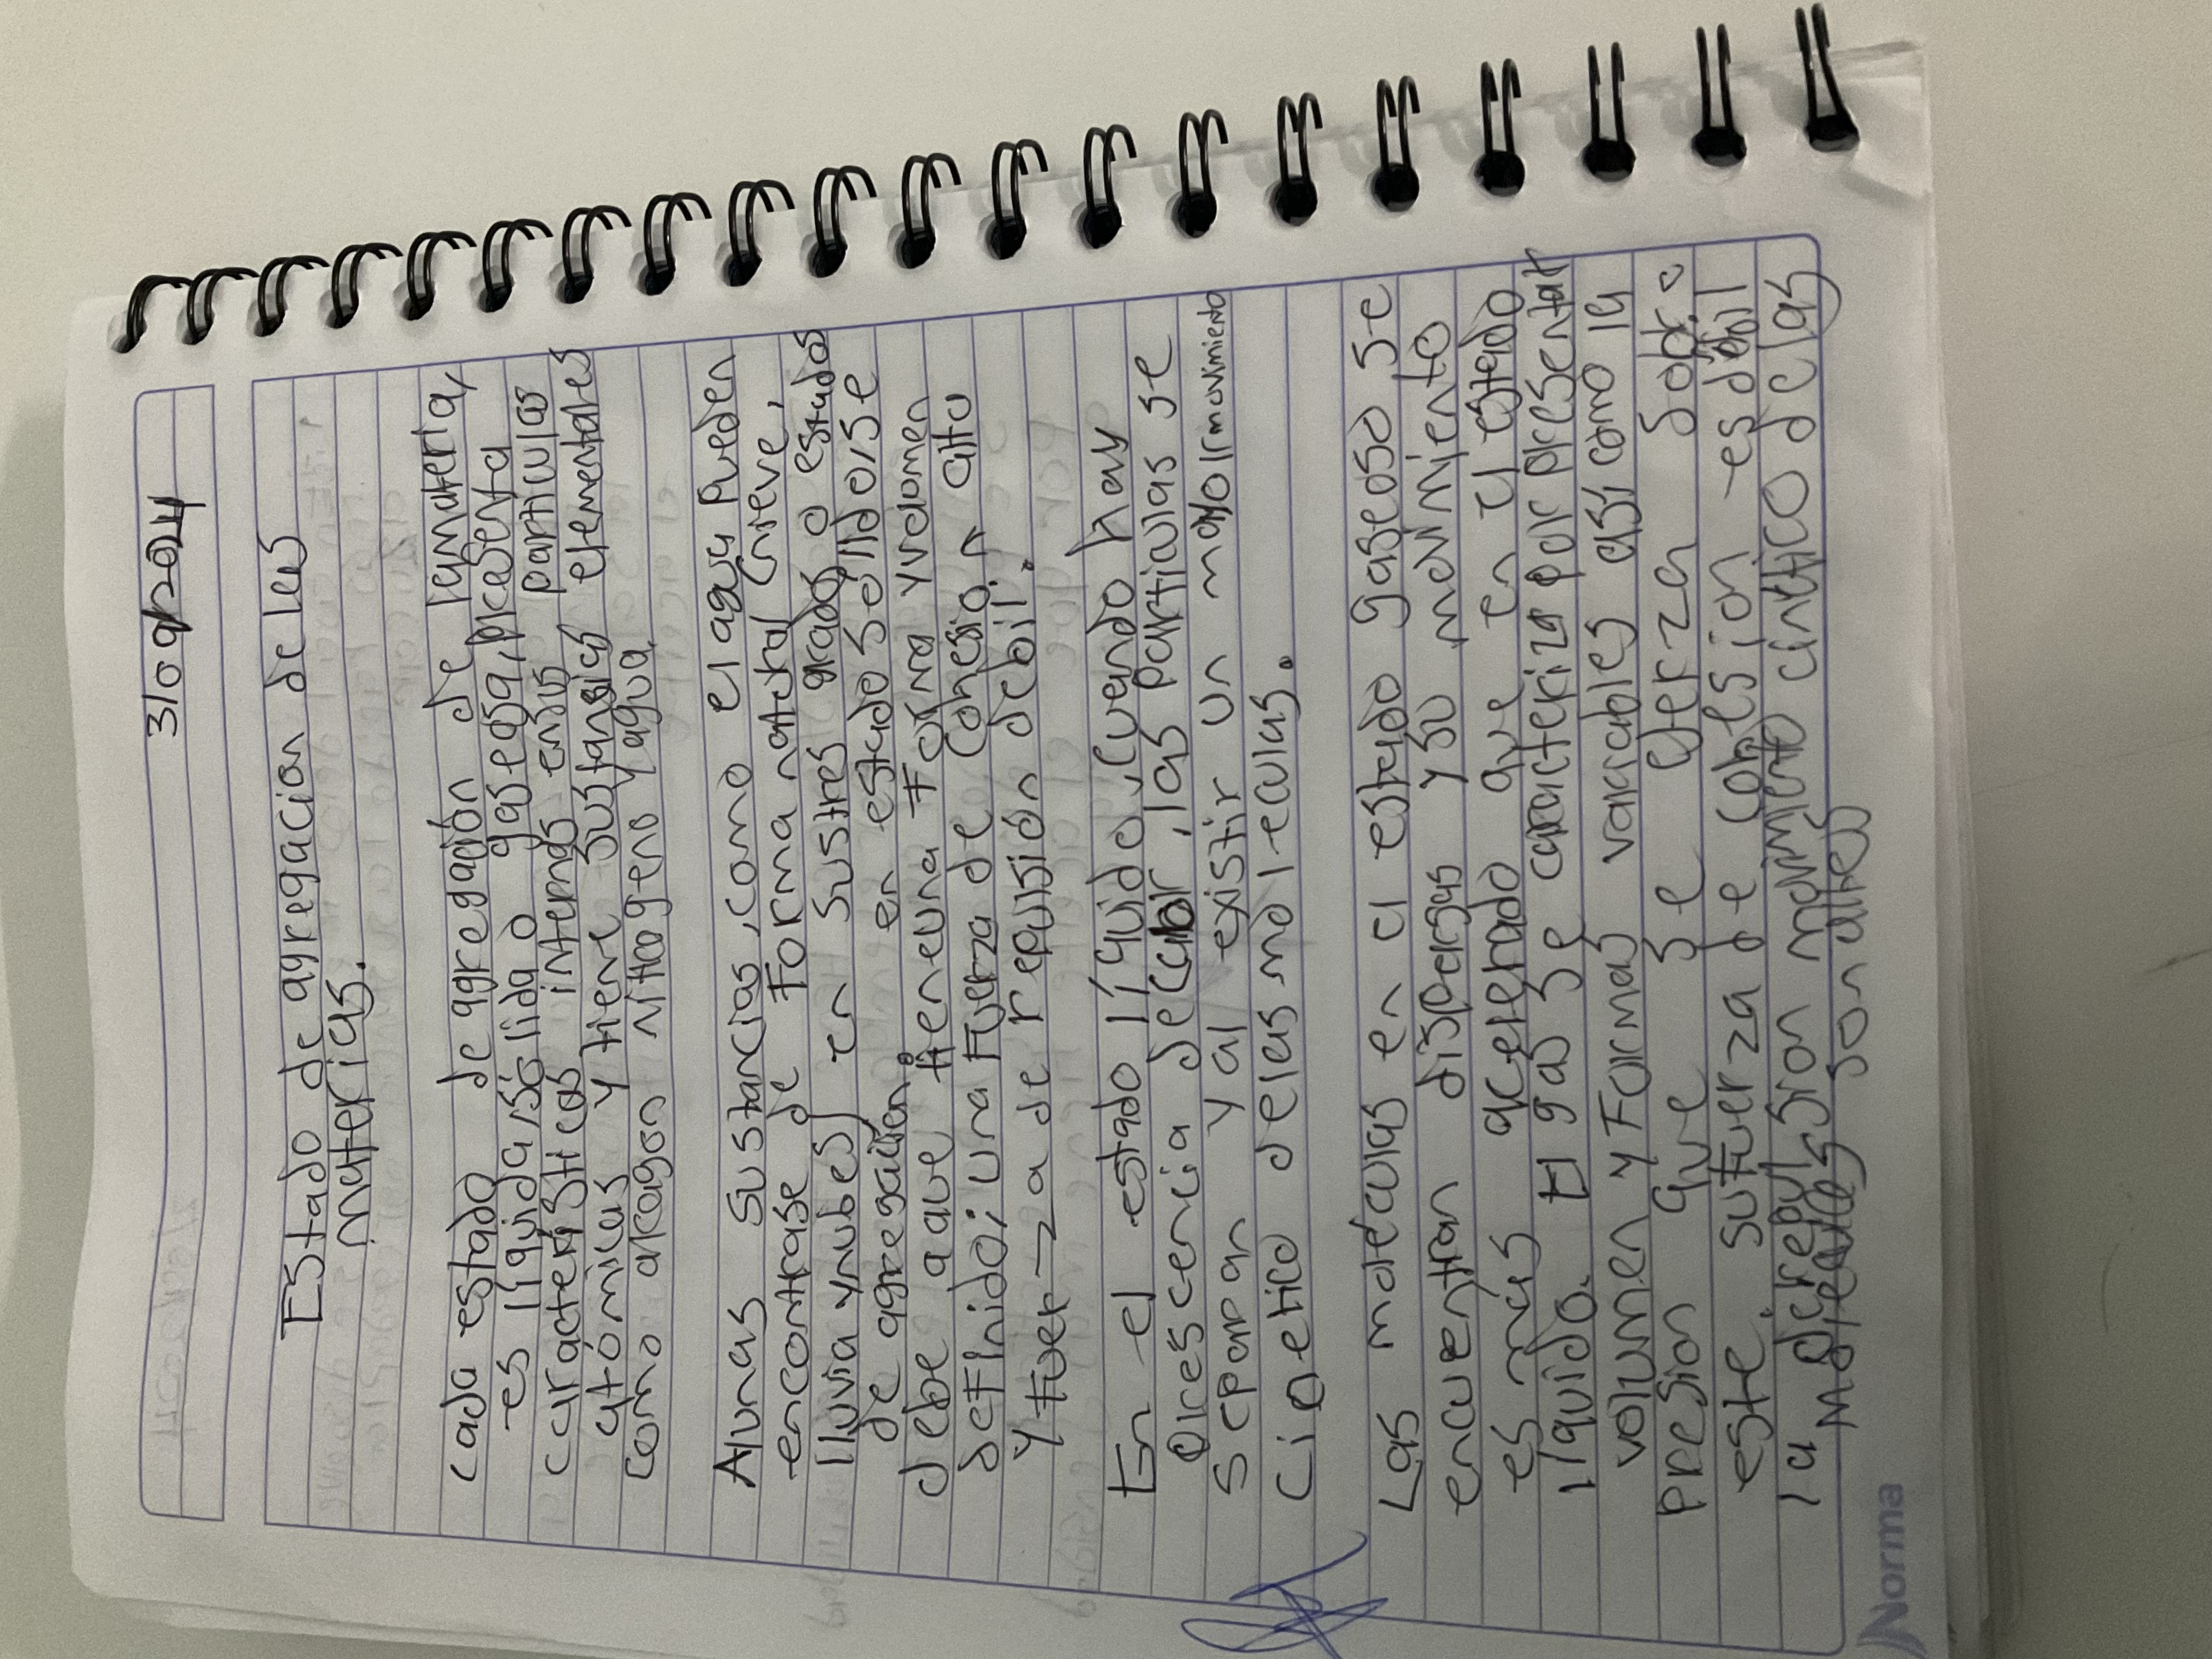 3/09/2024
Estado de agregacion de las
materias.
cada estado de agregación de lamateria,
es liquida, sólida o gaseosa, presenta
características internas ensus particulas
atómicas y tiene sustansias elementales
como arcagon nitrogeno y agua
Alunas sustancias, como el agua pueden
encontrase de Forma natural (nieve,
lluvia ynubes) en sustres grados o estados
de agregación. en estado solido, se
debe a aue tieneuna Forma yvolomen
definido; una Fuerza de Cohesion alta
y fuer→a de repulsión debil.
En el estado líquido, cuando hay
presencia de calor, las particulas se
separan y al existir un mayor movimiento
cinetico delas moleculas.
Las moleculas en el estado gaseoso se
encuentran dispersas y su movimiento
es más acelerado que en el estado
liquido. El gas se caracteriza por presentar
volumen y Formas variables asi como la
presion que se ejerza sobre
este. sufuerza de cohesion es débil
la de repulsion movimiento cinético de las
moleculas son altes
Norma